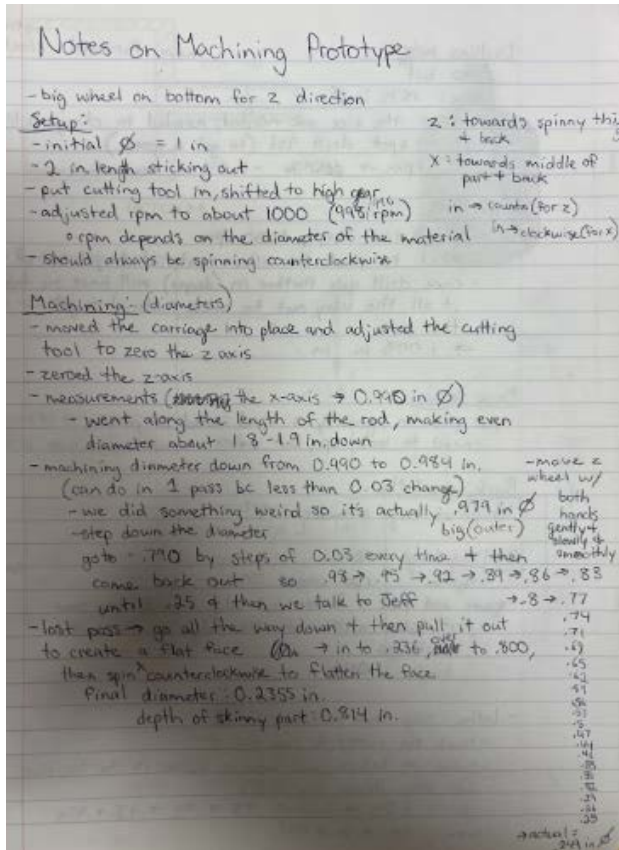 Notes on Machining Prototype
- big wheel on bottom for z direction
Setup:
- initial Ø = 1 in
- 2 in length sticking out
- put cutting tool in, shifted to high gear
- adjusted rpm to about 1000 (998 rpm)
o rpm depends on the diameter of the material
- should always be spinning counterclockwise
z: towards spinny thing
+ back
x: towards middle of
part + back
in → counter (for z)
in → clockwise (for x)
Machining: (diameters)
- moved the carriage into place and adjusted the cutting
tool to zero the z axis
- zeroed the z-axis
- measurements ( the x-axis → 0.990 in Ø)
- went along the length of the rod, making even
diameter about 1.8-1.9 in. down
- machining diameter down from 0.990 to 0.984 in.
(can do in 1 pass bc less than 0.03 change)
- we did something weird so it's actually .979 in Ø
big (outer)
- step down the diameter
go to .790 by steps of 0.03 every time + then
come back out so .98 → .95 → .92 → .89 → .86 → .83
until .25 & then we talk to Jeff → .8 → .77
.74
.71
.65
.62
.59
.56
.53
.5
.47
.44
.41
.29
.26
.25
→ actual =
.249 in Ø
- move z
wheel w/
both
hands
gently +
slowly +
smoothly
- last pass → go all the way down + then pull it out
to create a flat face → in to .236, over to .800,
then spin x counterclockwise to flatten the face
final diameter: 0.2355 in.
depth of skinny part: 0.814 in.